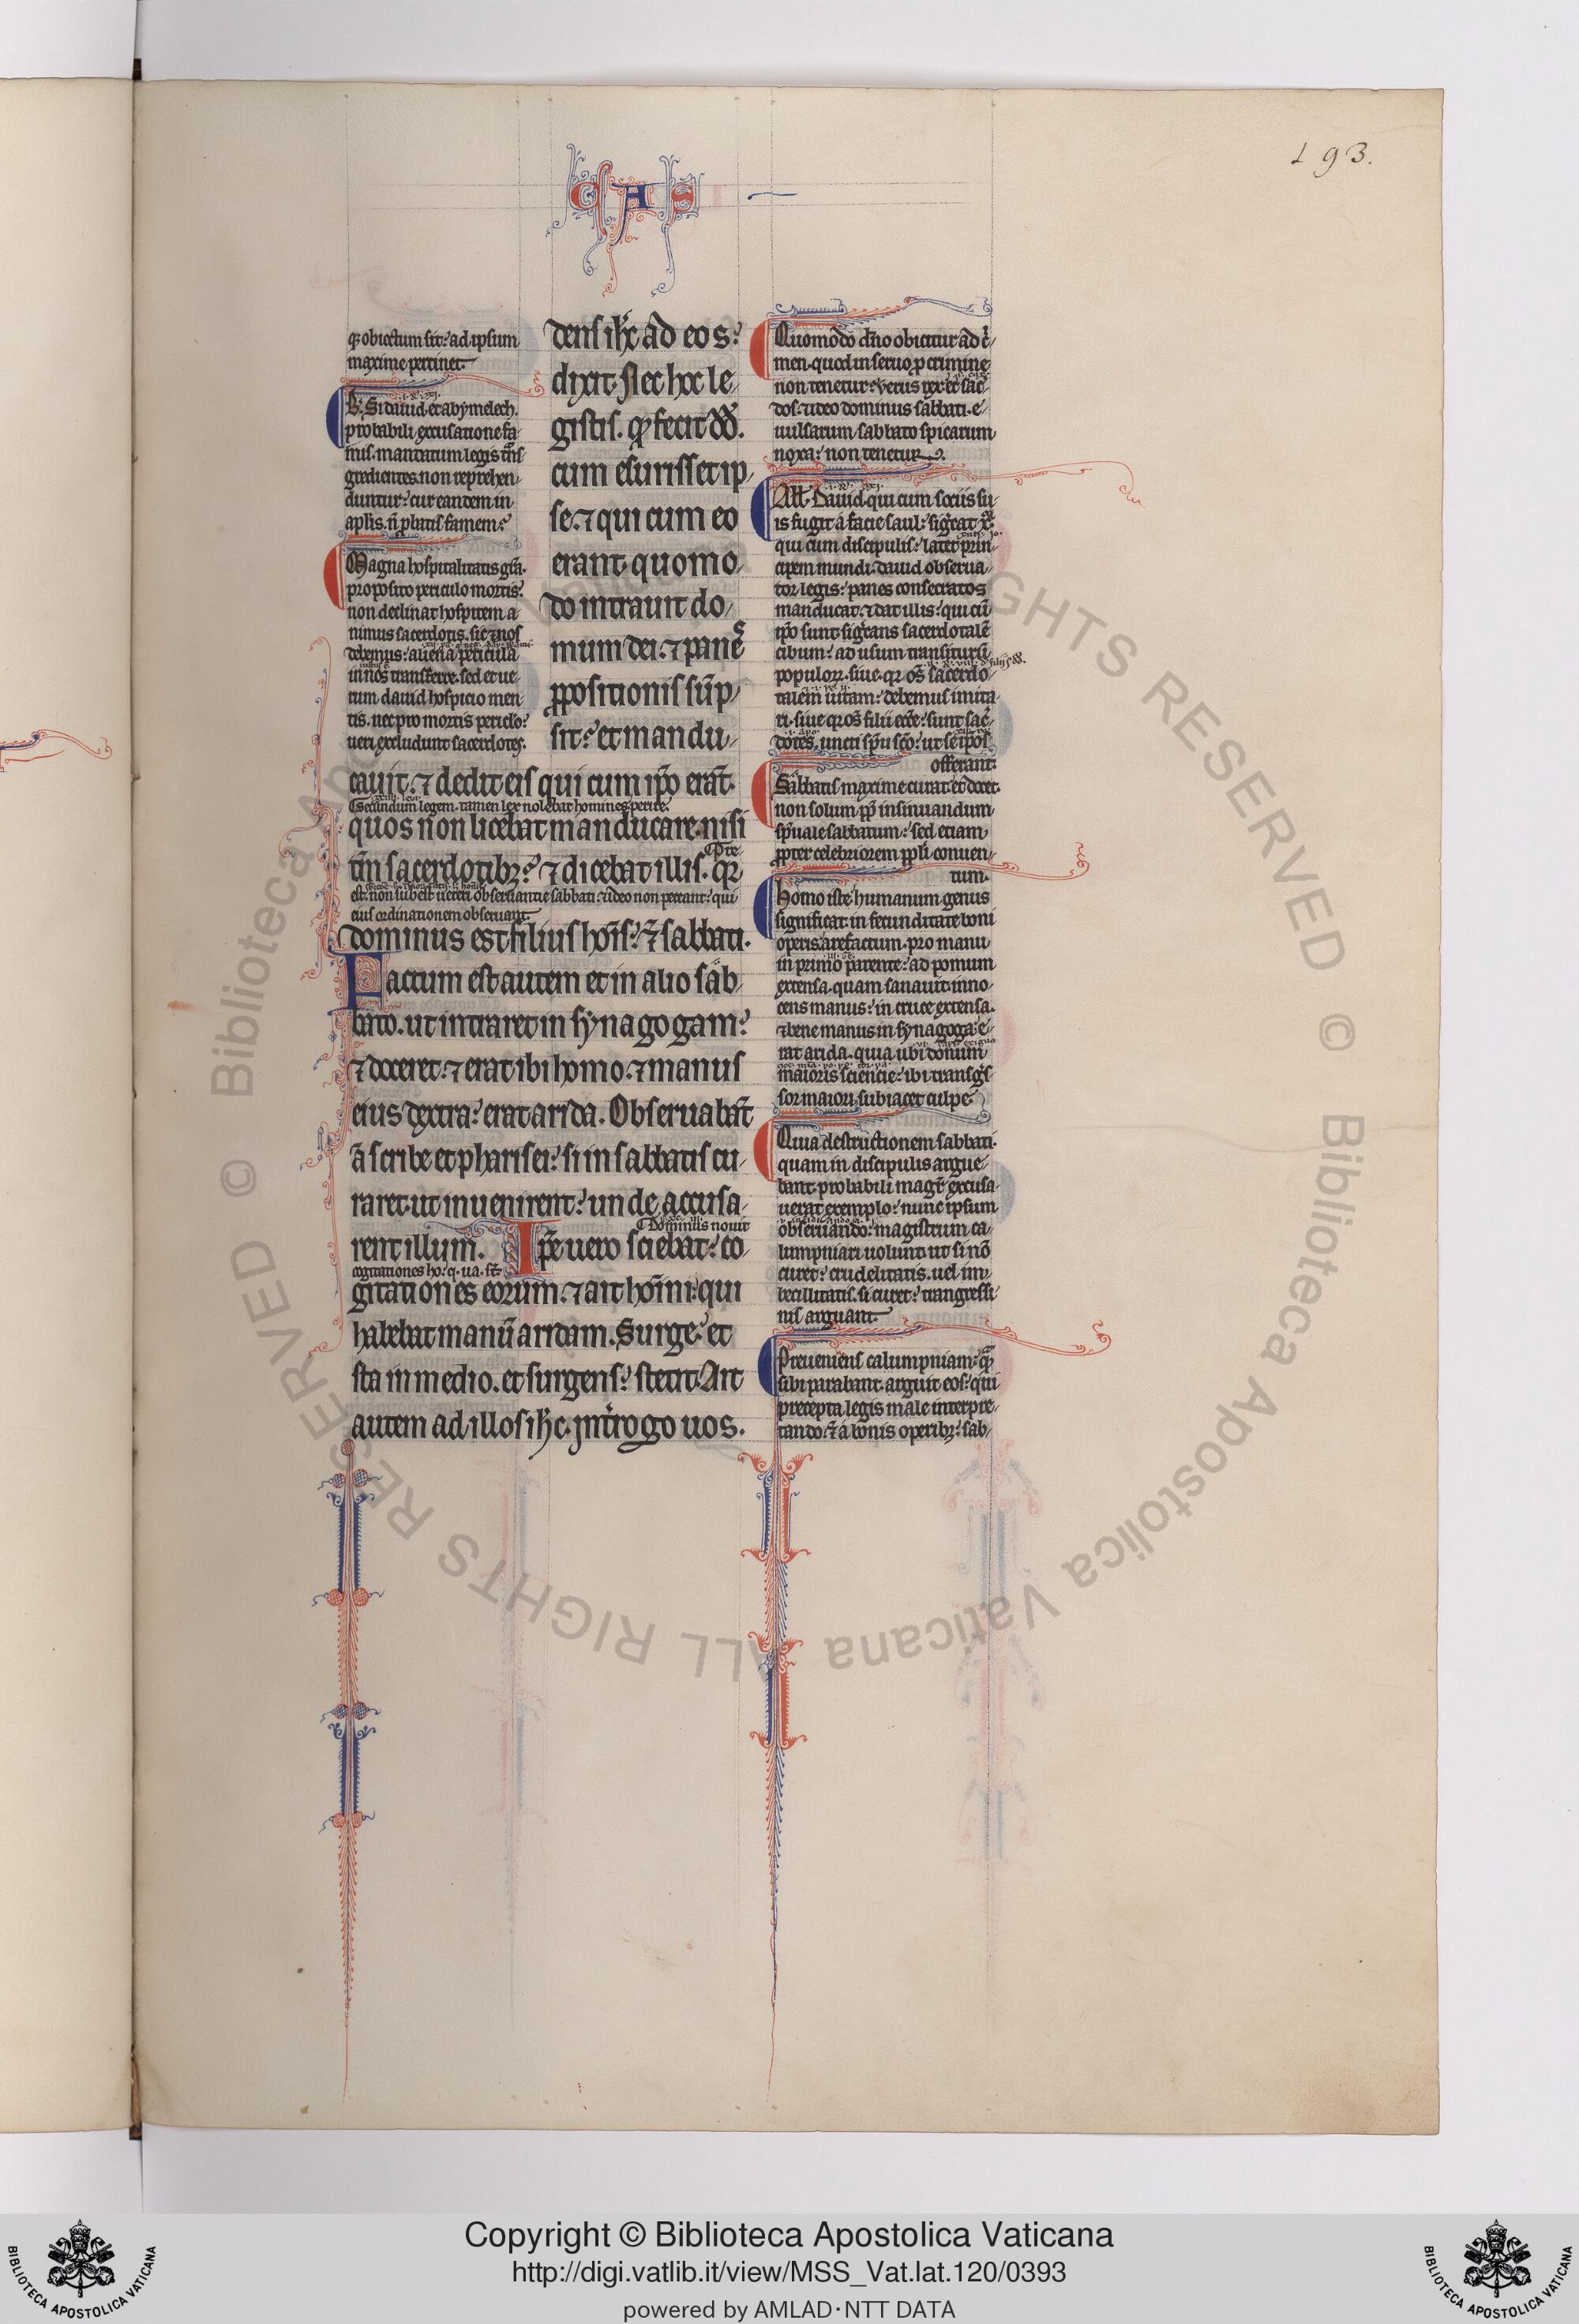 193.
CAS
q̄ obiectum sit: ad ipsum
maxime pertinet.
B. Si dauid et abymelech.
probabili excusatione fa
mis. mandatum legis
gredientes non reprehen
duntur: cur eandem in
aplis. n̄ famem:
Magna hospitalitatis gr̄a.
proposito periculo mortis:
non declinat hospitem a
nimus sacerdotis. sic ⁊ nos
debemus: aliena pericula
in nos transferre. sed et ue
rum dauid hospicio men
tis. nec pro mortis periclo:
ueri excludunt sacerdotes.
dens ih̄c ad eos:
dixit. Nec hoc le
gistis. q̄ fecit dd̄.
cum esurisset ip
se. ⁊ qui cum eo
erant. quomo
do intrauit do
mum dei. ⁊ panes
propositionis sūp
sit: et mandu
cauit. ⁊ dedit eis qui cum ip̄o erāt.
Secundum legem. tamen lex nolebat homines perire.
quos non licebat manducare. nisi
tm̄ sacerdotibꝫ: ⁊ dicebat illis. qꝛ
est. non subest ueteri obseruantie sabbati. ideo non peccant: qui
eius ordinationem obseruant.
dominus est filius hois: ⁊ sabbati.
Factum est autem et in alio sab
bato. ut intraret in synagogam:
⁊ doceret. ⁊ erat ibi homo. ⁊ manus
eius dextra: erat arida. Obseruabāt
ā scribe et pharisei: si in sabbatis cu
raret. ut inuenirent: unde accusa
Dominus nouit
rent illum. Ipse uero sciebat: co
cogitationes ho. q. ua. st̄.
gitationes eorum. ⁊ ait homini: qui
habebat manū aridam. Surge: et
sta in medio. et surgens: stetit. Ait
autem ad illos ih̄c. Int̄rogo uos.
Quomodo dn̄o obicitur ad c̄
men. quod in seruo p crimine
non tenetur: Verus rex et sac̄
dos. ideo dominus sabbati. e
uulsarum sabbato spicarum
noxa: non tenetur.
Att. Dauid. qui cum sociis su
is fugit a facie saul: sigᷓcat xp̄.
qui cum discipulis: latet prin
cipem mundi. dauid obserua
tor legis: panes consecratos
manducat. ⁊ dat illis: qui cū
ip̄o sunt. sigᷓcans sacerdotalē
cibum: ad usum transiturū
populoꝝ. siue. qꝛ os̄ sacerdo
talem uitam: debemus imita
ri. siue qꝛ os̄ filii ecc̄e: sunt sac̄
dotes. uncti sp̄u sc̄o: ut se ip̄os
offerant.
Sabbatis maxime curat et docet.
non solum pp̄ insinuandum
sp̄uale sabbatum: sed etiam
ꝓpter celebriorem pp̄li conuen
tum.
Homo iste humanum genus
significat. in fecunditate boni
operis. arefactum. pro manu
in primo parente: ad pomum
extensa. quam sanauit inno
cens manus: in cruce extensa.
⁊ bene manus in synagoga: e
rat arida. quia ubi donum
maioris sciencie: ibi transgᷓs
sor maiori subiacet culpe.
Quia destructionem sabbati.
quam in discipulis argue
bant. probabili magr̄ excusa
uerat exemplo: nunc ipsum
obseruando: magistrum ca
lumpniari uolunt. ut si nō
curet: crudelitatis. uel im
becillitatis. si curet: trangressi
nis arguant.
Preueniens calumpniam: q̄
sibi parabant. arguit eos: qui
precepta legis male interpre
tando. ⁊ a bonis operibꝫ: sab
© Biblioteca Apostolica Vaticana ALL RIGHTS RESERVED
Copyright © Biblioteca Apostolica Vaticana
http://digi.vatlib.it/view/MSS_Vat.lat.120/0393
powered by AMLAD·NTT DATA
BIBLIOTECA APOSTOLICA VATICANA
BIBLIOTECA APOSTOLICA VATICANA